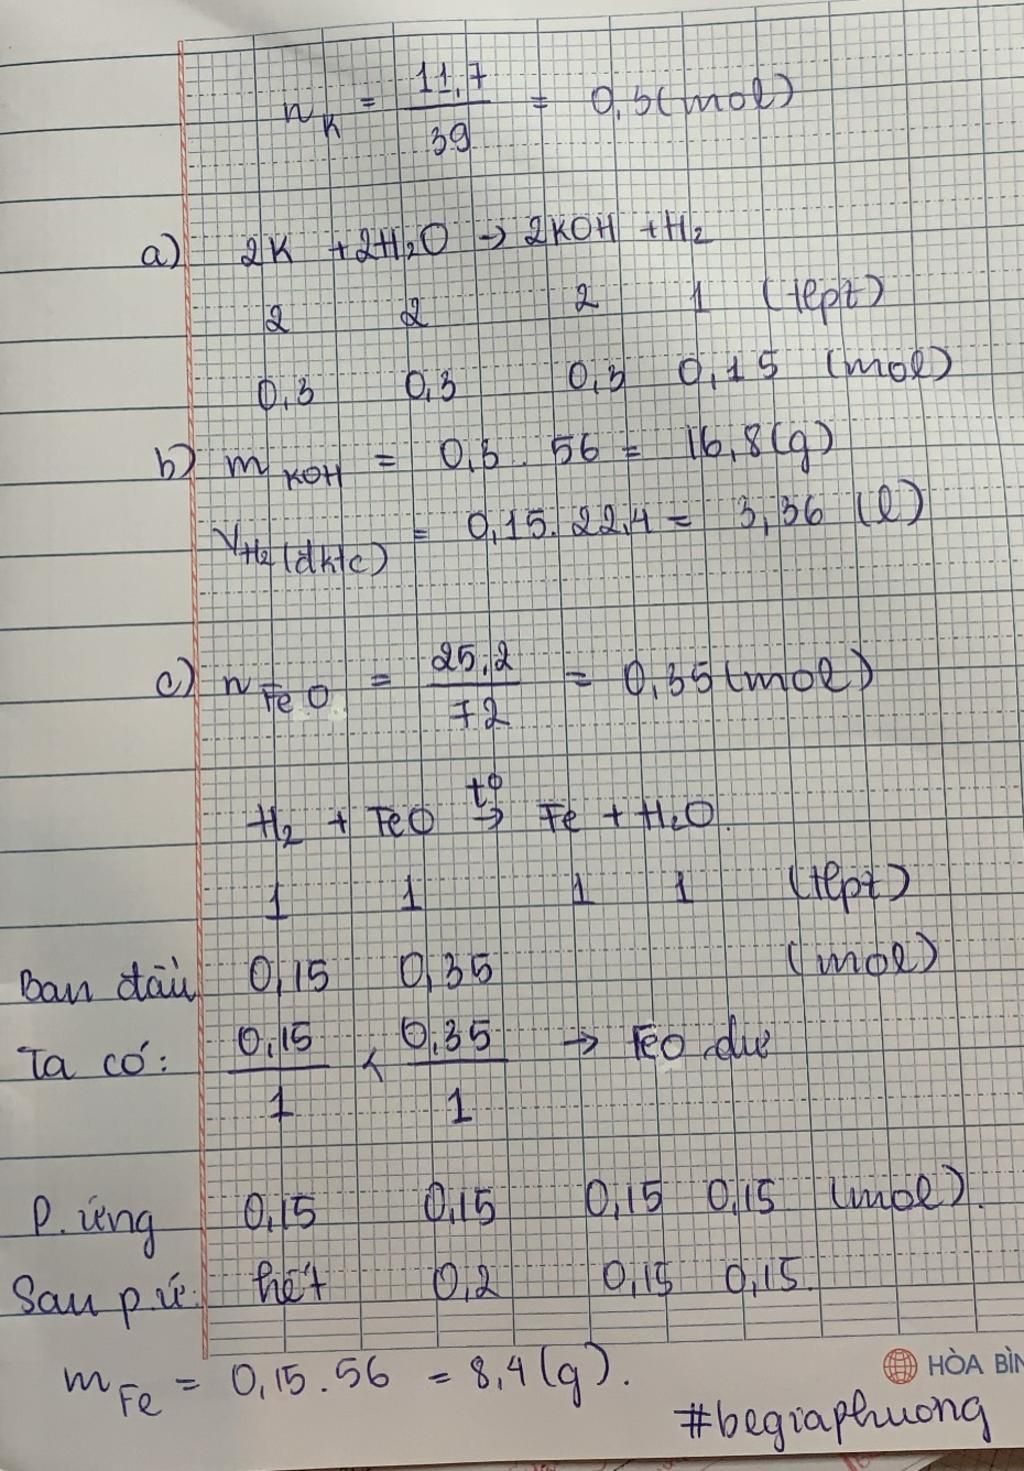 n K = 11,7 / 39 = 0,3 (mol)
a) 2K + 2H₂O → 2KOH + H₂
2 2 2 1 (tlpt)
0,3 0,3 0,3 0,15 (mol)
b) m KOH = 0,3 . 56 = 16,8 (g)
V H₂ (đktc) = 0,15 . 22,4 = 3,36 (l)
c) n FeO = 25,2 / 72 = 0,35 (mol)
H₂ + FeO t° → Fe + H₂O.
1 1 1 1 (tlpt)
Ban đầu 0,15 0,35 (mol)
Ta có: 0,15 / 1 < 0,35 / 1 → FeO dư
P. ứng 0,15 0,15 0,15 0,15 (mol).
Sau p.ứ: hết 0,2 0,15 0,15.
m Fe = 0,15 . 56 = 8,4 (g).
HÒA BÌN
#begiaphuong